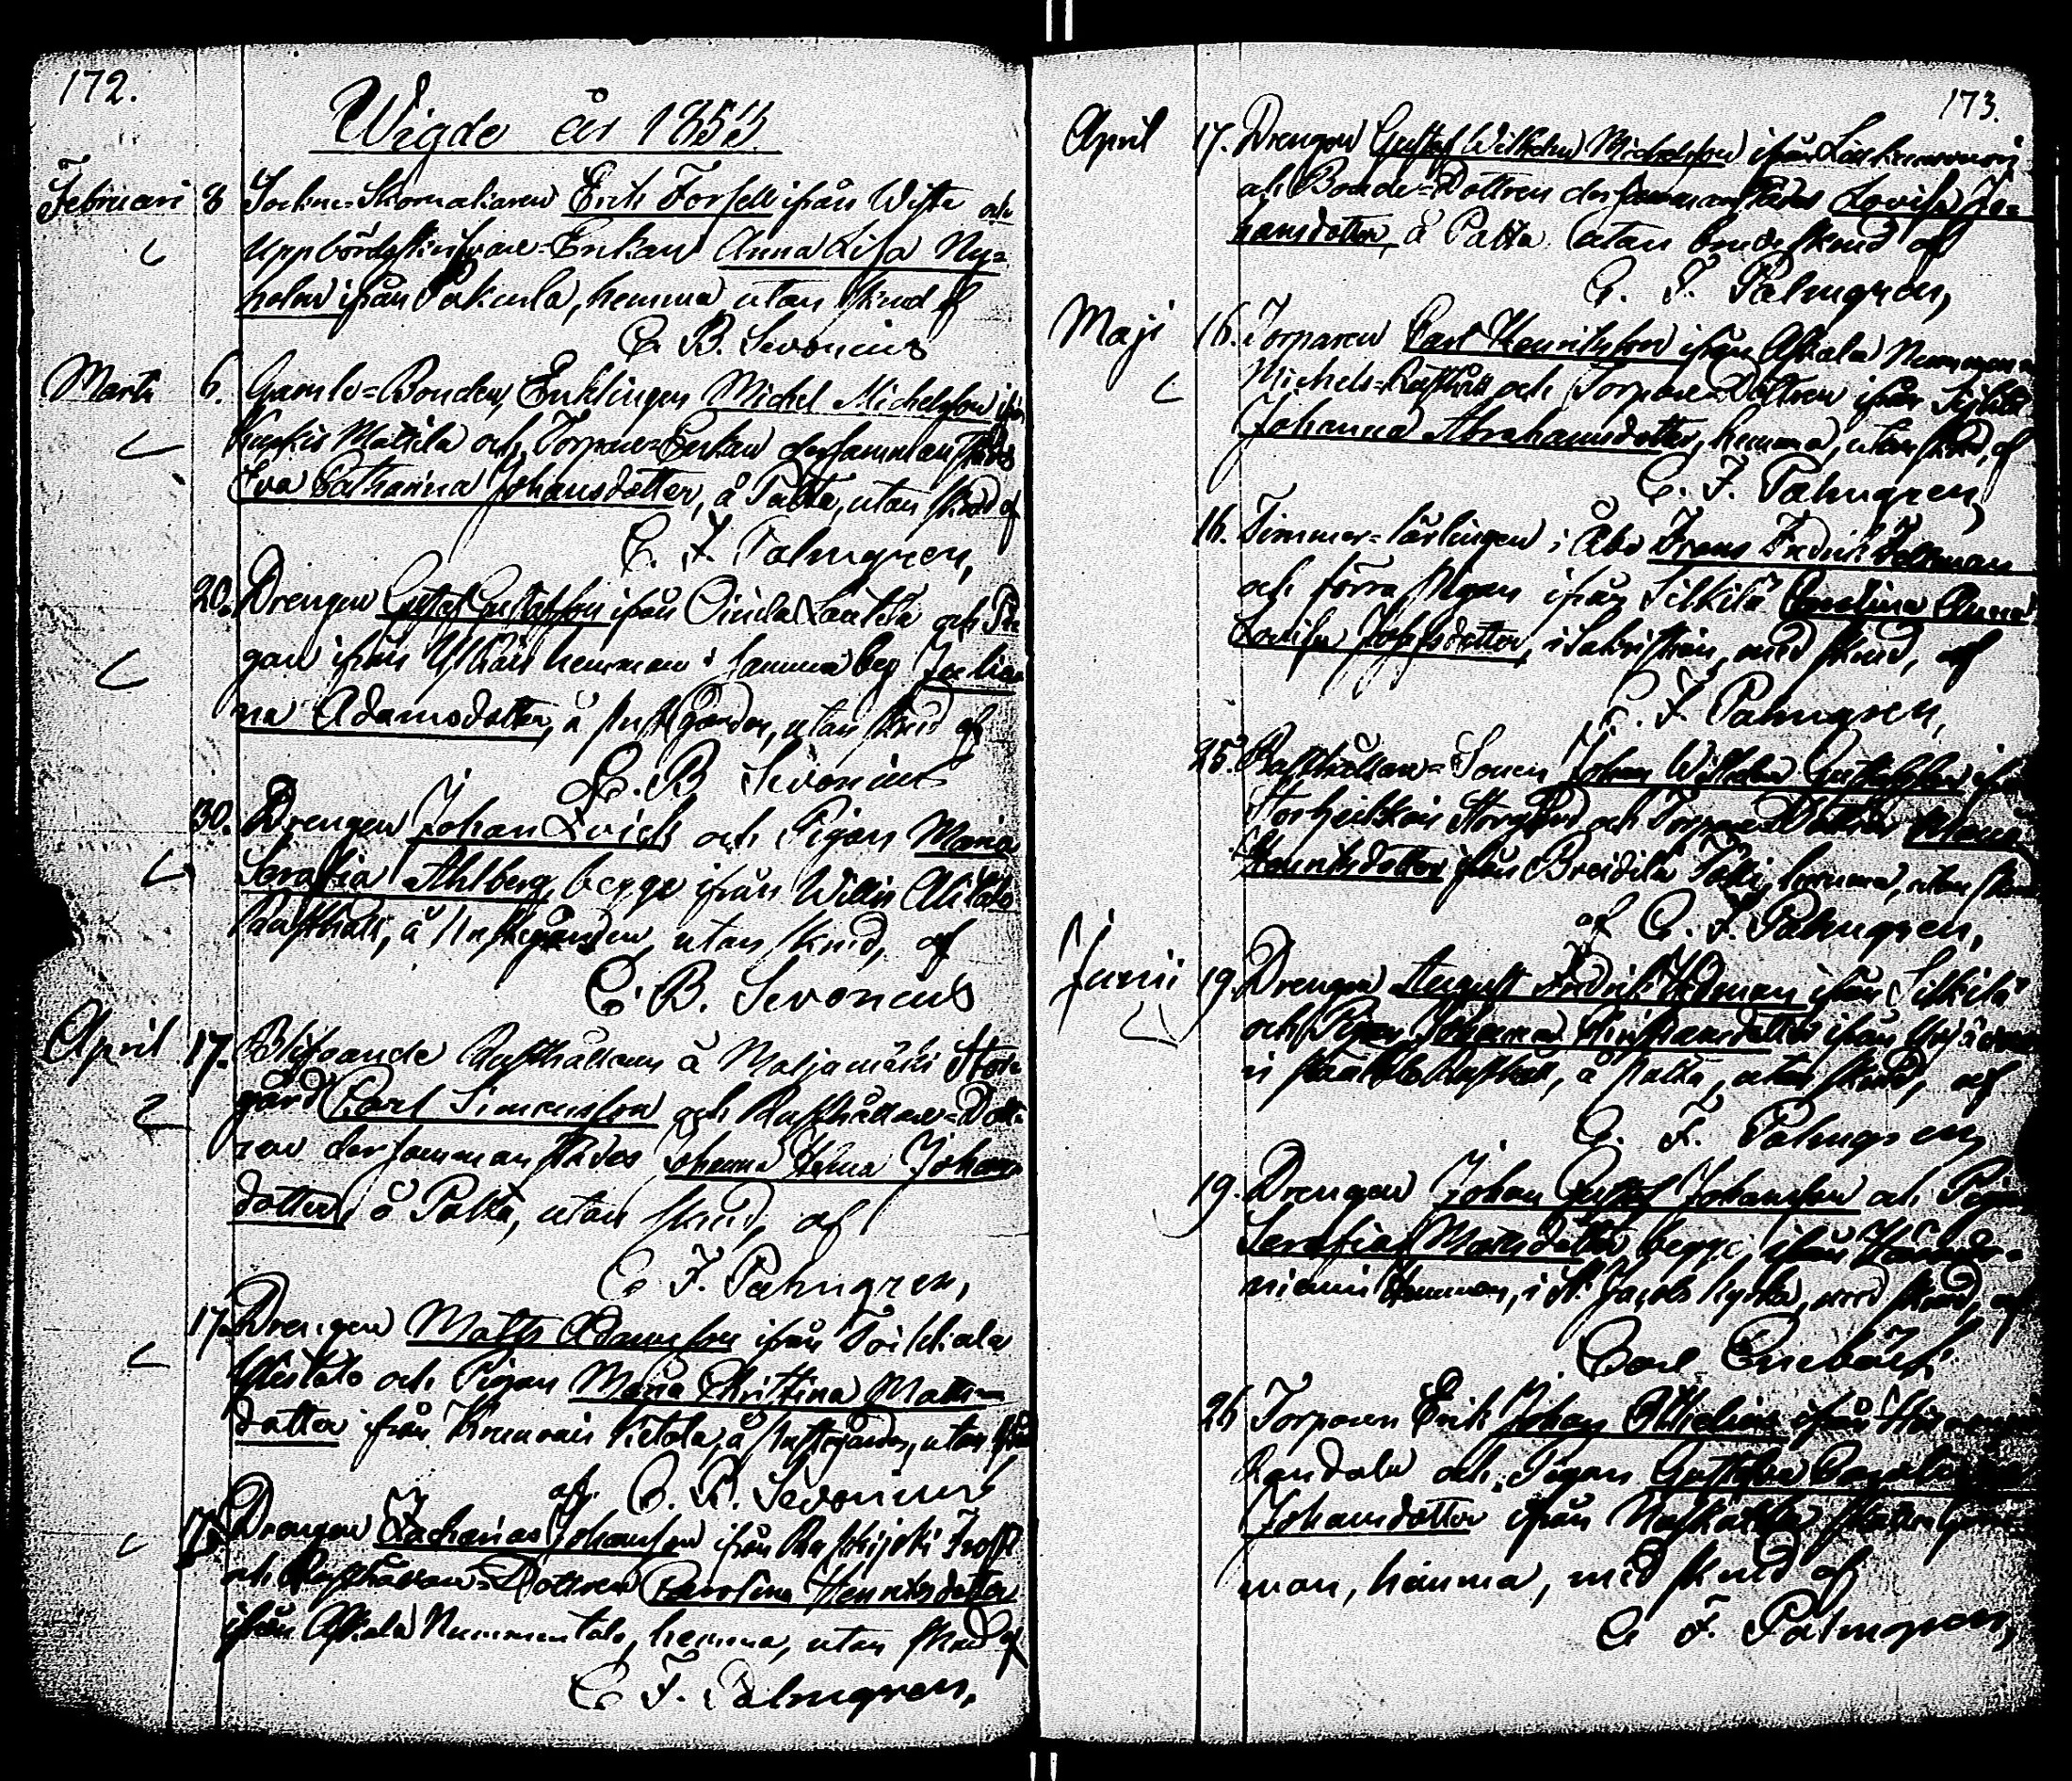 172.
Wigde år 1853.
Februari 8 Sockne-Skomakaren Erik Forsell ifrån Wiste och
Uppbördsskrifvare-Enkan Anna Lisa Ny=
holm ifrån Pakurla, hemma utan skrud af
C. B. Sevonius
Marti 6. Gamle=Bonden, Enklingen Michel Michelsson ifrån
Mattila och Torpare=Enkan dersammanstädes
Eva Catharina Johansdotter, å Patta, utan skrud af
C. F. Palmgren,
20. Drengen Gustaf Gustafsson ifrån Oinila Lauttila och Pi
gan ifrån hemman i samma by Julia
na Adamsdotter, å Prestgården, utan skrud af
C. B. Sevonius
30. Drengen Johan Qvick och Pigan Maria
Serafia Ahlberg, begge ifrån Willis Alitalo
Rusthåll, å Prestegården, utan skrud, af
C. B. Sevonius
April 17. Blifvande Rusthållaren å Maljamäki Stor
gård Carl Simonsson och Rusthållare=Dott
ren dersammanstädes Johanna Helena Johans
dotter, å Patta, utan skrud, af
C. F. Palmgren,
17. Drengen Matts Adamsson ifrån Toikkala
Ylistalo och Pigan Maria Christina Matts=
dotter ifrån Pietola, å Prestegården, utan skrud
af C. B. Sevonius
17. Drengen Zacharias Johansson ifrån Frosst
och Rusthållare=Dottren Carolina Henriksdotter
ifrån Askala Nummentalo, hemma, utan skrud af
C. F. Palmgren,
173.
April 17. Drengen Gustaf Wilhelm Michelsson ifrån
och Bonde=Dottren dersammanstädes Lovisa Jo=
hansdotter, å Patta utan brudeskrud af
C. F. Palmgren,
Maji 16. Torparen Carl Henriksson ifrån Askala Nummen
Michels=Rusthåll och Torpare=Dottren ifrån
Johanna Abrahamsdotter, hemma, utan skrud, af
C. F. Palmgren,
16. Timmer=lärlingen i Åbo Frans Fredrik
och förra Pigan ifrån Silkilä Carolina Anna
Lovisa Josefsdotter, i Sakristian, med skrud, af
C. F. Palmgren,
25. Rusthållare=Sonen Johan Wilhelm Gustafsson ifrån
Storheikkilä Storgård och Torpare=Dottren
Henriksdotter ifrån Breidilä hemma, utan skrud
af C. F. Palmgren,
Junii 19. Drengen August Fredrik ifrån Silkilä
och Pigan Johanna Christiansdotter ifrån
Rusthåll, å Patta, utan skrud, af
C. F. Palmgren,
19. Drengen Johan Gustaf Johansson och Pigan
Serafia Mattsdotter, begge ifrån
niemi hemman, i St. Jacobs kyrka, med skrud, af
Carl
26 Torparen Erik Johan ifrån
Randala och Pigan Gustafva Carolina
Johansdotter ifrån
man, hemma, med skrud af
C. F. Palmgren,